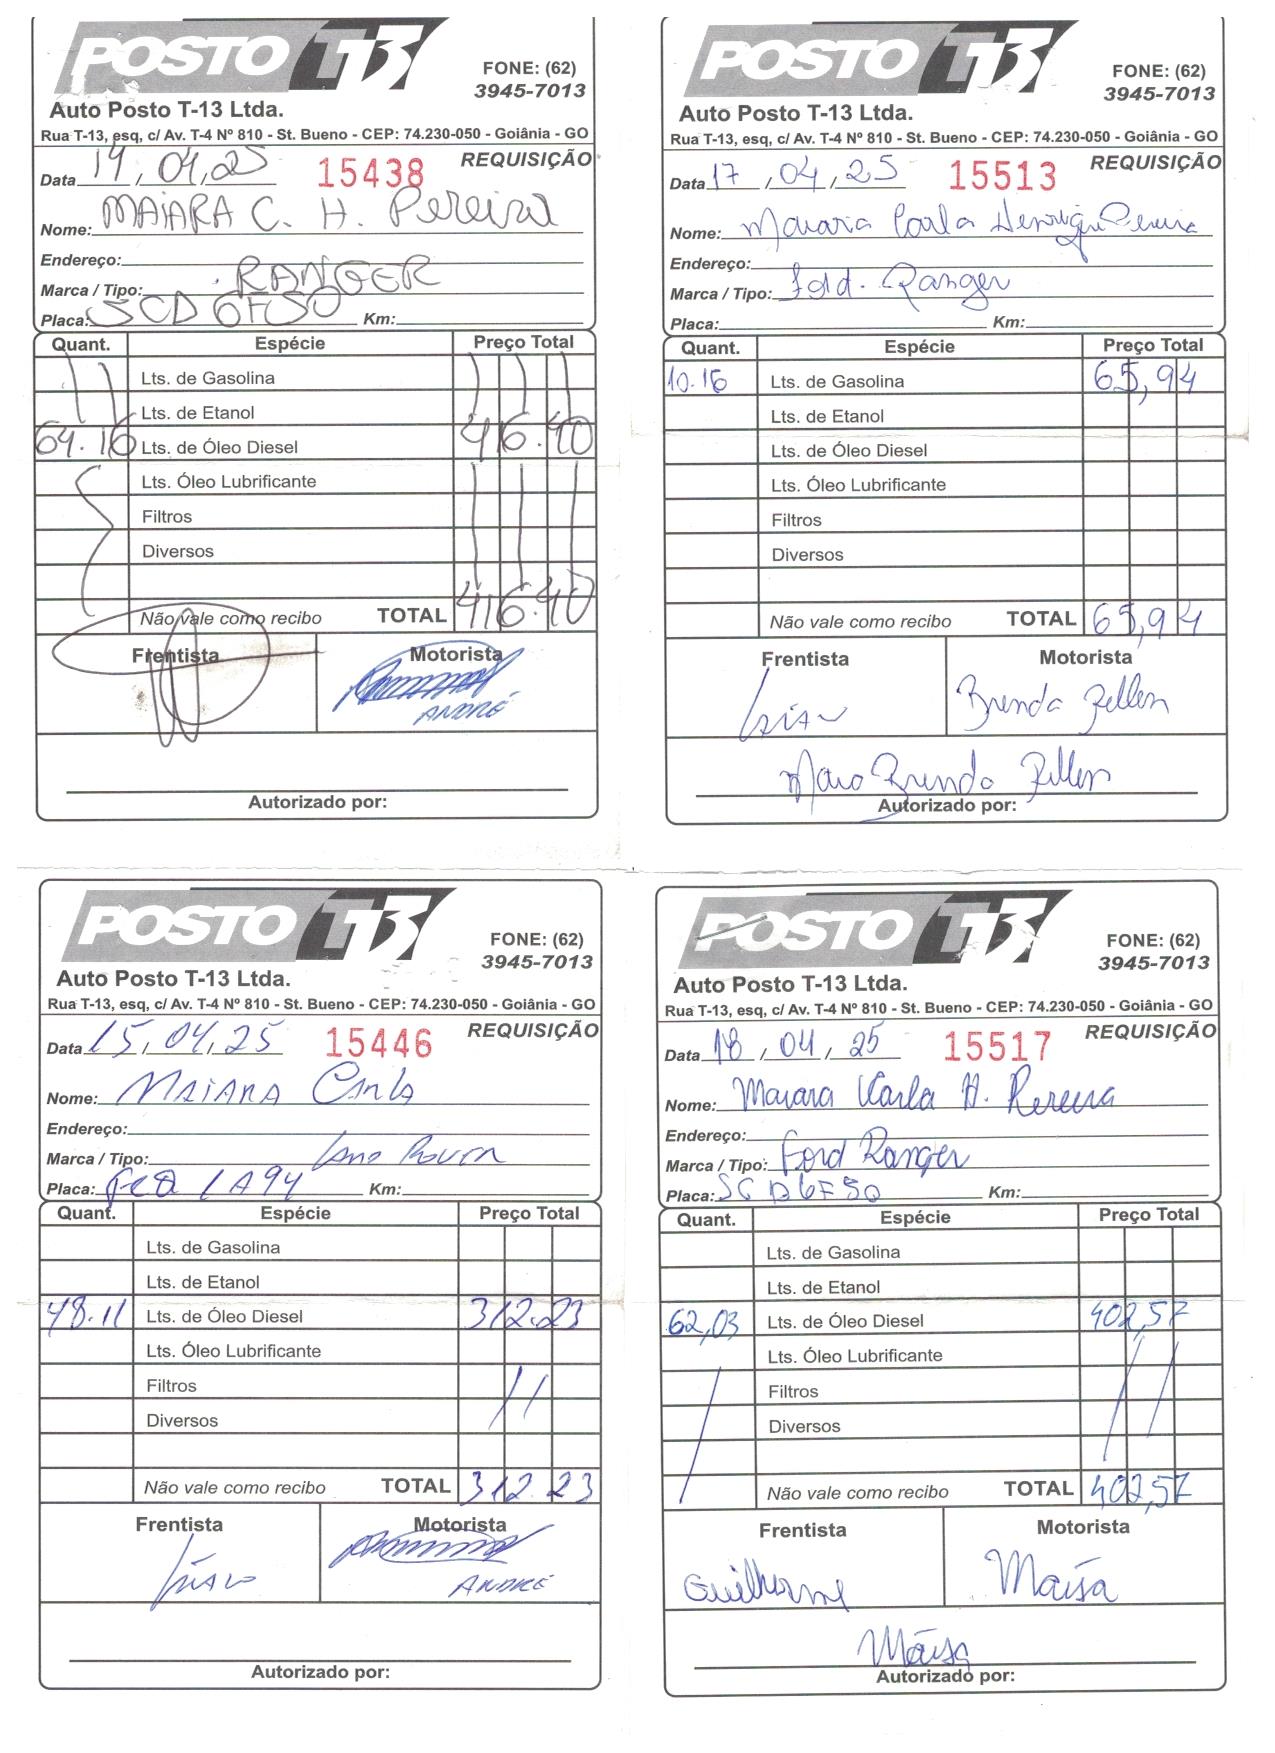 POSTO T-13
FONE: (62)
3945-7013
Auto Posto T-13 Ltda.
Rua T-13, esq, c/ Av. T-4 Nº 810 - St. Bueno - CEP: 74.230-050 - Goiânia - GO
REQUISIÇÃO
Data 14, 04, 25 15438
Nome: MAIARA C. H. Pereira
Endereço:
Marca / Tipo: RANGER
Placa: SCD 6F50 Km:
Quant. Espécie Preço Total
Lts. de Gasolina
Lts. de Etanol
64.16 Lts. de Óleo Diesel 416.40
Lts. Óleo Lubrificante
Filtros
Diversos
Não vale como recibo TOTAL 416.40
Frentista Motorista
ANDRÉ
Autorizado por:
POSTO T-13
FONE: (62)
3945-7013
Auto Posto T-13 Ltda.
Rua T-13, esq, c/ Av. T-4 Nº 810 - St. Bueno - CEP: 74.230-050 - Goiânia - GO
REQUISIÇÃO
Data 17 , 04 , 25 15513
Nome: Maiara Carla Henrique Pereira
Endereço:
Marca / Tipo: Ford. Ranger
Placa: Km:
Quant. Espécie Preço Total
10.16 Lts. de Gasolina 65,94
Lts. de Etanol
Lts. de Óleo Diesel
Lts. Óleo Lubrificante
Filtros
Diversos
Não vale como recibo TOTAL 65,94
Frentista Motorista
Brenda
Brenda
Autorizado por:
POSTO T-13
FONE: (62)
3945-7013
Auto Posto T-13 Ltda.
Rua T-13, esq, c/ Av. T-4 Nº 810 - St. Bueno - CEP: 74.230-050 - Goiânia - GO
REQUISIÇÃO
Data 15, 04, 25 15446
Nome: MAIARA Carla
Endereço:
Marca / Tipo:
Placa: Km:
Quant. Espécie Preço Total
Lts. de Gasolina
Lts. de Etanol
48.11 Lts. de Óleo Diesel 312.23
Lts. Óleo Lubrificante
Filtros
Diversos
Não vale como recibo TOTAL 312.23
Frentista Motorista
ANDRÉ
Autorizado por:
POSTO T-13
FONE: (62)
3945-7013
Auto Posto T-13 Ltda.
Rua T-13, esq, c/ Av. T-4 Nº 810 - St. Bueno - CEP: 74.230-050 - Goiânia - GO
REQUISIÇÃO
Data 18 , 04 , 25 15517
Nome: Maiara Karla H. Pereira
Endereço:
Marca / Tipo: Ford Ranger
Placa: SCD6F50 Km:
Quant. Espécie Preço Total
Lts. de Gasolina
Lts. de Etanol
62,03 Lts. de Óleo Diesel 402,57
Lts. Óleo Lubrificante
Filtros
Diversos
Não vale como recibo TOTAL 402,57
Frentista Motorista
Guilherme Maísa
Maísa
Autorizado por: